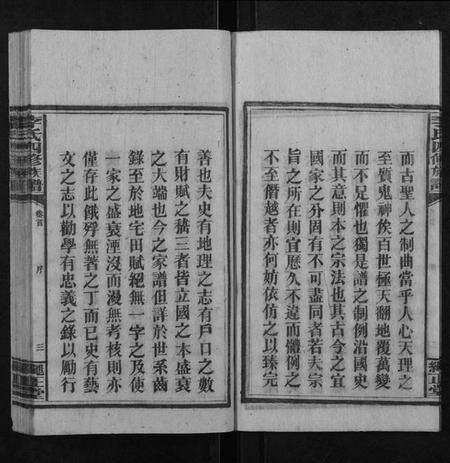 李氏四修族譜
而古聖人之制曲當乎人心天理之
至質鬼神俟百世極天翻地覆萬變
而不足懼也獨是譜之制例沿國史
而其意則本之宗法也其古今之宜
國家之分固有不可盡同者若夫宗
旨之所在則宜歷久不違而體例之
於不僭越者亦何妨依仿之以臻完
善也夫史有地理之志有戶口之數
有財賦之籍三者皆立國之本盛衰
之大端也今之家譜但詳於世系齒
錄至於地宅田賦絕無一字之及使
一家之盛衰湮沒而漫無考核則亦
僅存此餓殍無著之丁而已史有藝
文之志以勸學有忠義之錄以勵行
李氏四修族譜
卷首
序
三